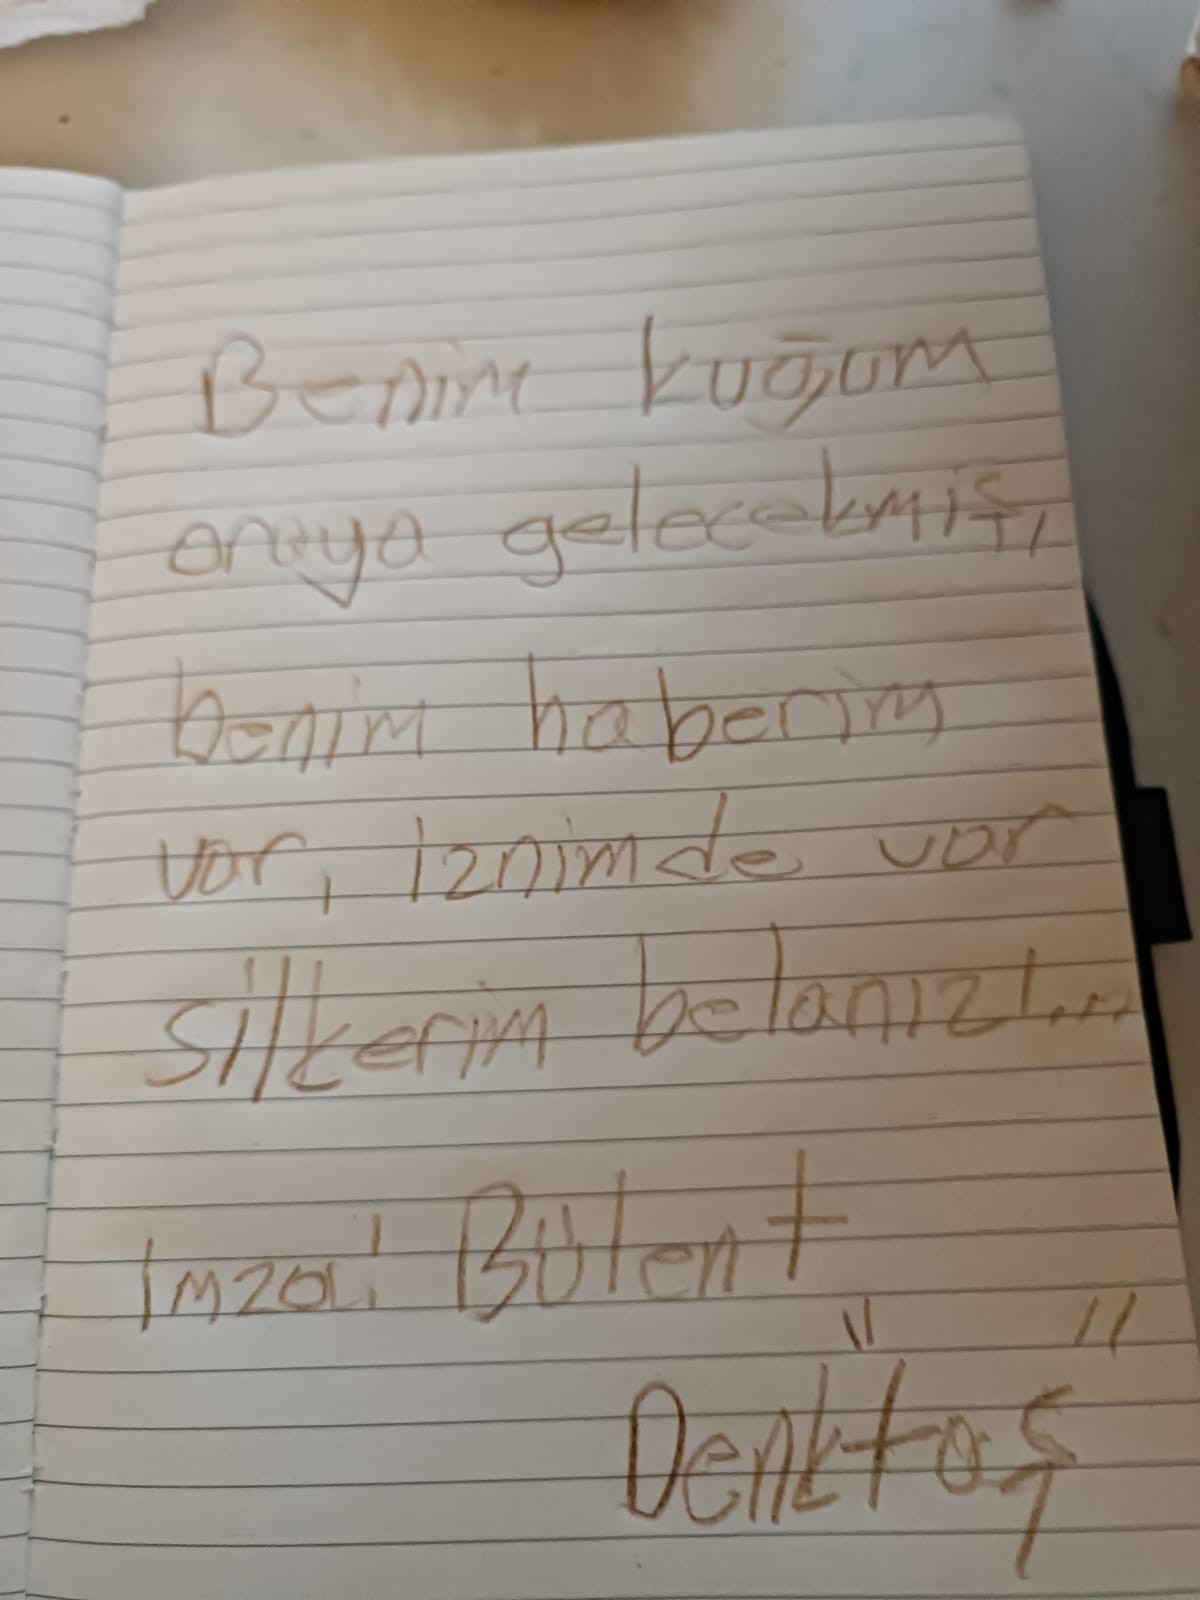 Benim kuğum
oraya gelecekmiş,
benim haberim
var, iznimde var
silkerim belanızı...
imza: Bülent
" "
Denktaş